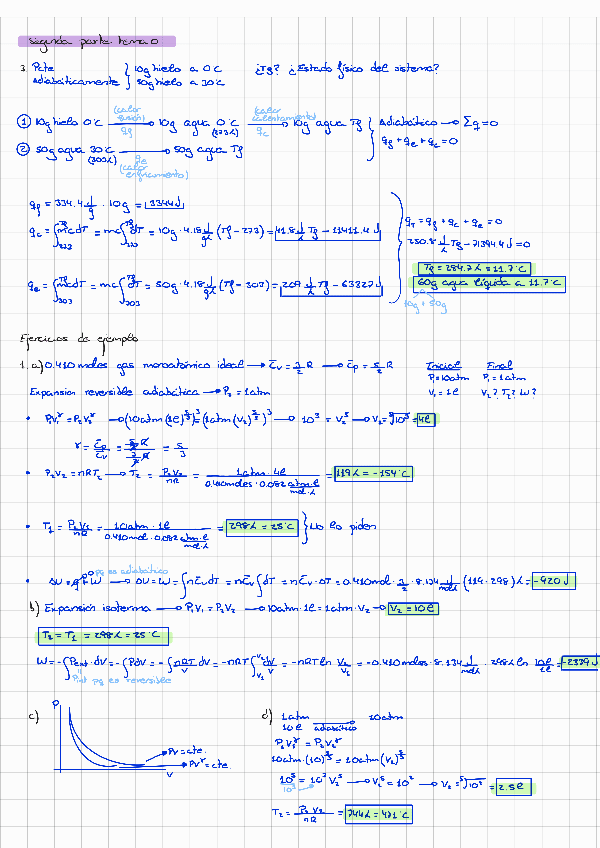 Segunda parte tema 0
3. Pate adiabáticamente } 10g hielo a 0°C ¿Tf? ¿Estado físico del sistema?
50g hielo a 30°C
① 10g hielo 0°C (calor fusión) qf → 10g agua 0°C (273k) (calor calentamiento) qc → 10g agua Tf } Adiabático → Σq=0
② 50g agua 30°C (303k) qe (calor enfriamiento) → 50g agua Tf
qf + qe + qc = 0
qf = 334.4 J/g · 10g = 3344J
qc = ∫273^Tf mcdT = mc∫273^Tf dT = 10g · 4.18 J/gk (Tf - 273) = 41.8 J/k Tf - 11411.4 J
qe = ∫303^Tf mcdT = mc∫303^Tf dT = 50g · 4.18 J/gk (Tf - 303) = 209 J/k Tf - 63327 J
qT = qf + qc + qe = 0
250.8 J/k Tf - 71394.4 J = 0
Tf = 284.7k = 11.7°C
60g agua líquida a 11.7°C
10g + 50g
Ejercicios de ejemplo
1. a) 0.410 moles gas monoatómico ideal → c̄v = 3/2 R → c̄p = 5/2 R
Inicial Final
P1 = 10atm P2 = 1atm
V1 = 1l V2? T2? W?
Expansión reversible adiabática → P2 = 1atm
• P1V1^γ = P2V2^γ → (10atm (1l)^5/3)^3 = (1atm (V2)^5/3)^3 → 10^3 = V2^5 → V2 = ⁵√10^3 = 4l
γ = c̄p/c̄v = (5/2 R)/(3/2 R) = 5/3
• P2V2 = nRT2 → T2 = P2V2/nR = 1atm · 4l / 0.410moles · 0.082 atm·l/mol·k = 119k = -154°C
• T1 = P1V1/nR = 10atm · 1l / 0.410mol · 0.082 atm·l/mol·k = 298k = 25°C } No lo piden
• ΔU = q + W 0 pq es adiabático → ΔU = W = ∫nc̄vdT = nc̄v∫dT = nc̄v · ΔT = 0.410mol · 3/2 · 8.134 J/molk (119 - 298)k = -920J
b) Expansión isoterma → P1V1 = P2V2 → 10atm · 1l = 1atm · V2 → V2 = 10l
T2 = T1 = 298k = 25°C
W = -∫Pext · dV = -∫PdV = -∫nRT/V dV = -nRT∫V1^V2 dV/V = -nRT ln V2/V1 = -0.410moles · 8.134 J/molk · 298k ln 10l/1l = -2339J
Pint pq es reversible
c) P
PV = cte.
PV^γ = cte.
V
d) 1atm 10l adiabático → 10atm
P1V1^γ = P2V2^γ
1atm · (10)^5/3 = 10atm (V2)^5/3
10^5 = 10^3 V2^5 → V2^5 = 10^2 → V2 = ⁵√10^2 = 2.5l
10^3
T2 = P2V2/nR = 744k = 471°C